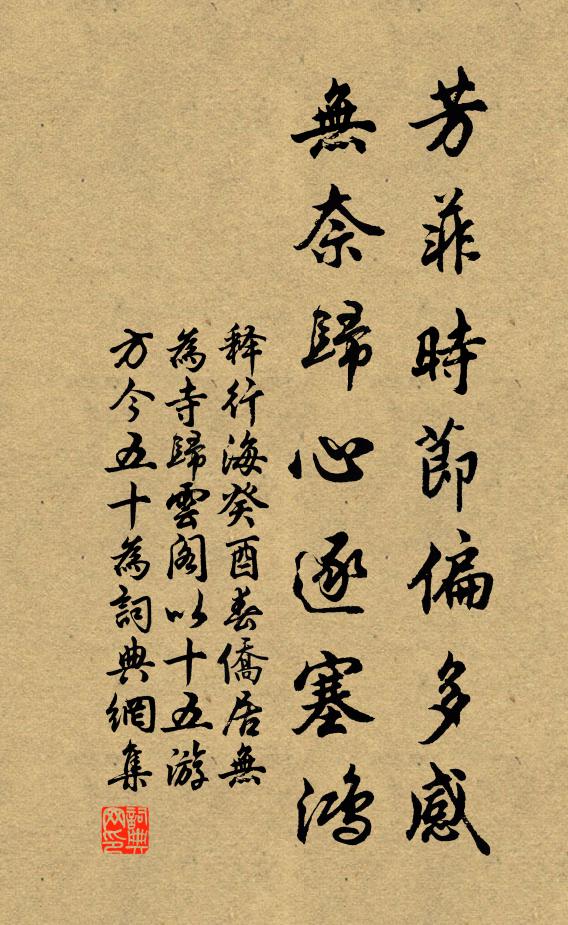 芳菲時節偏多感
無奈歸心逐塞鴻
释行海癸酉春僑居無
為寺歸雲阁以十五游
方今五十為詞典網集
詞典网印